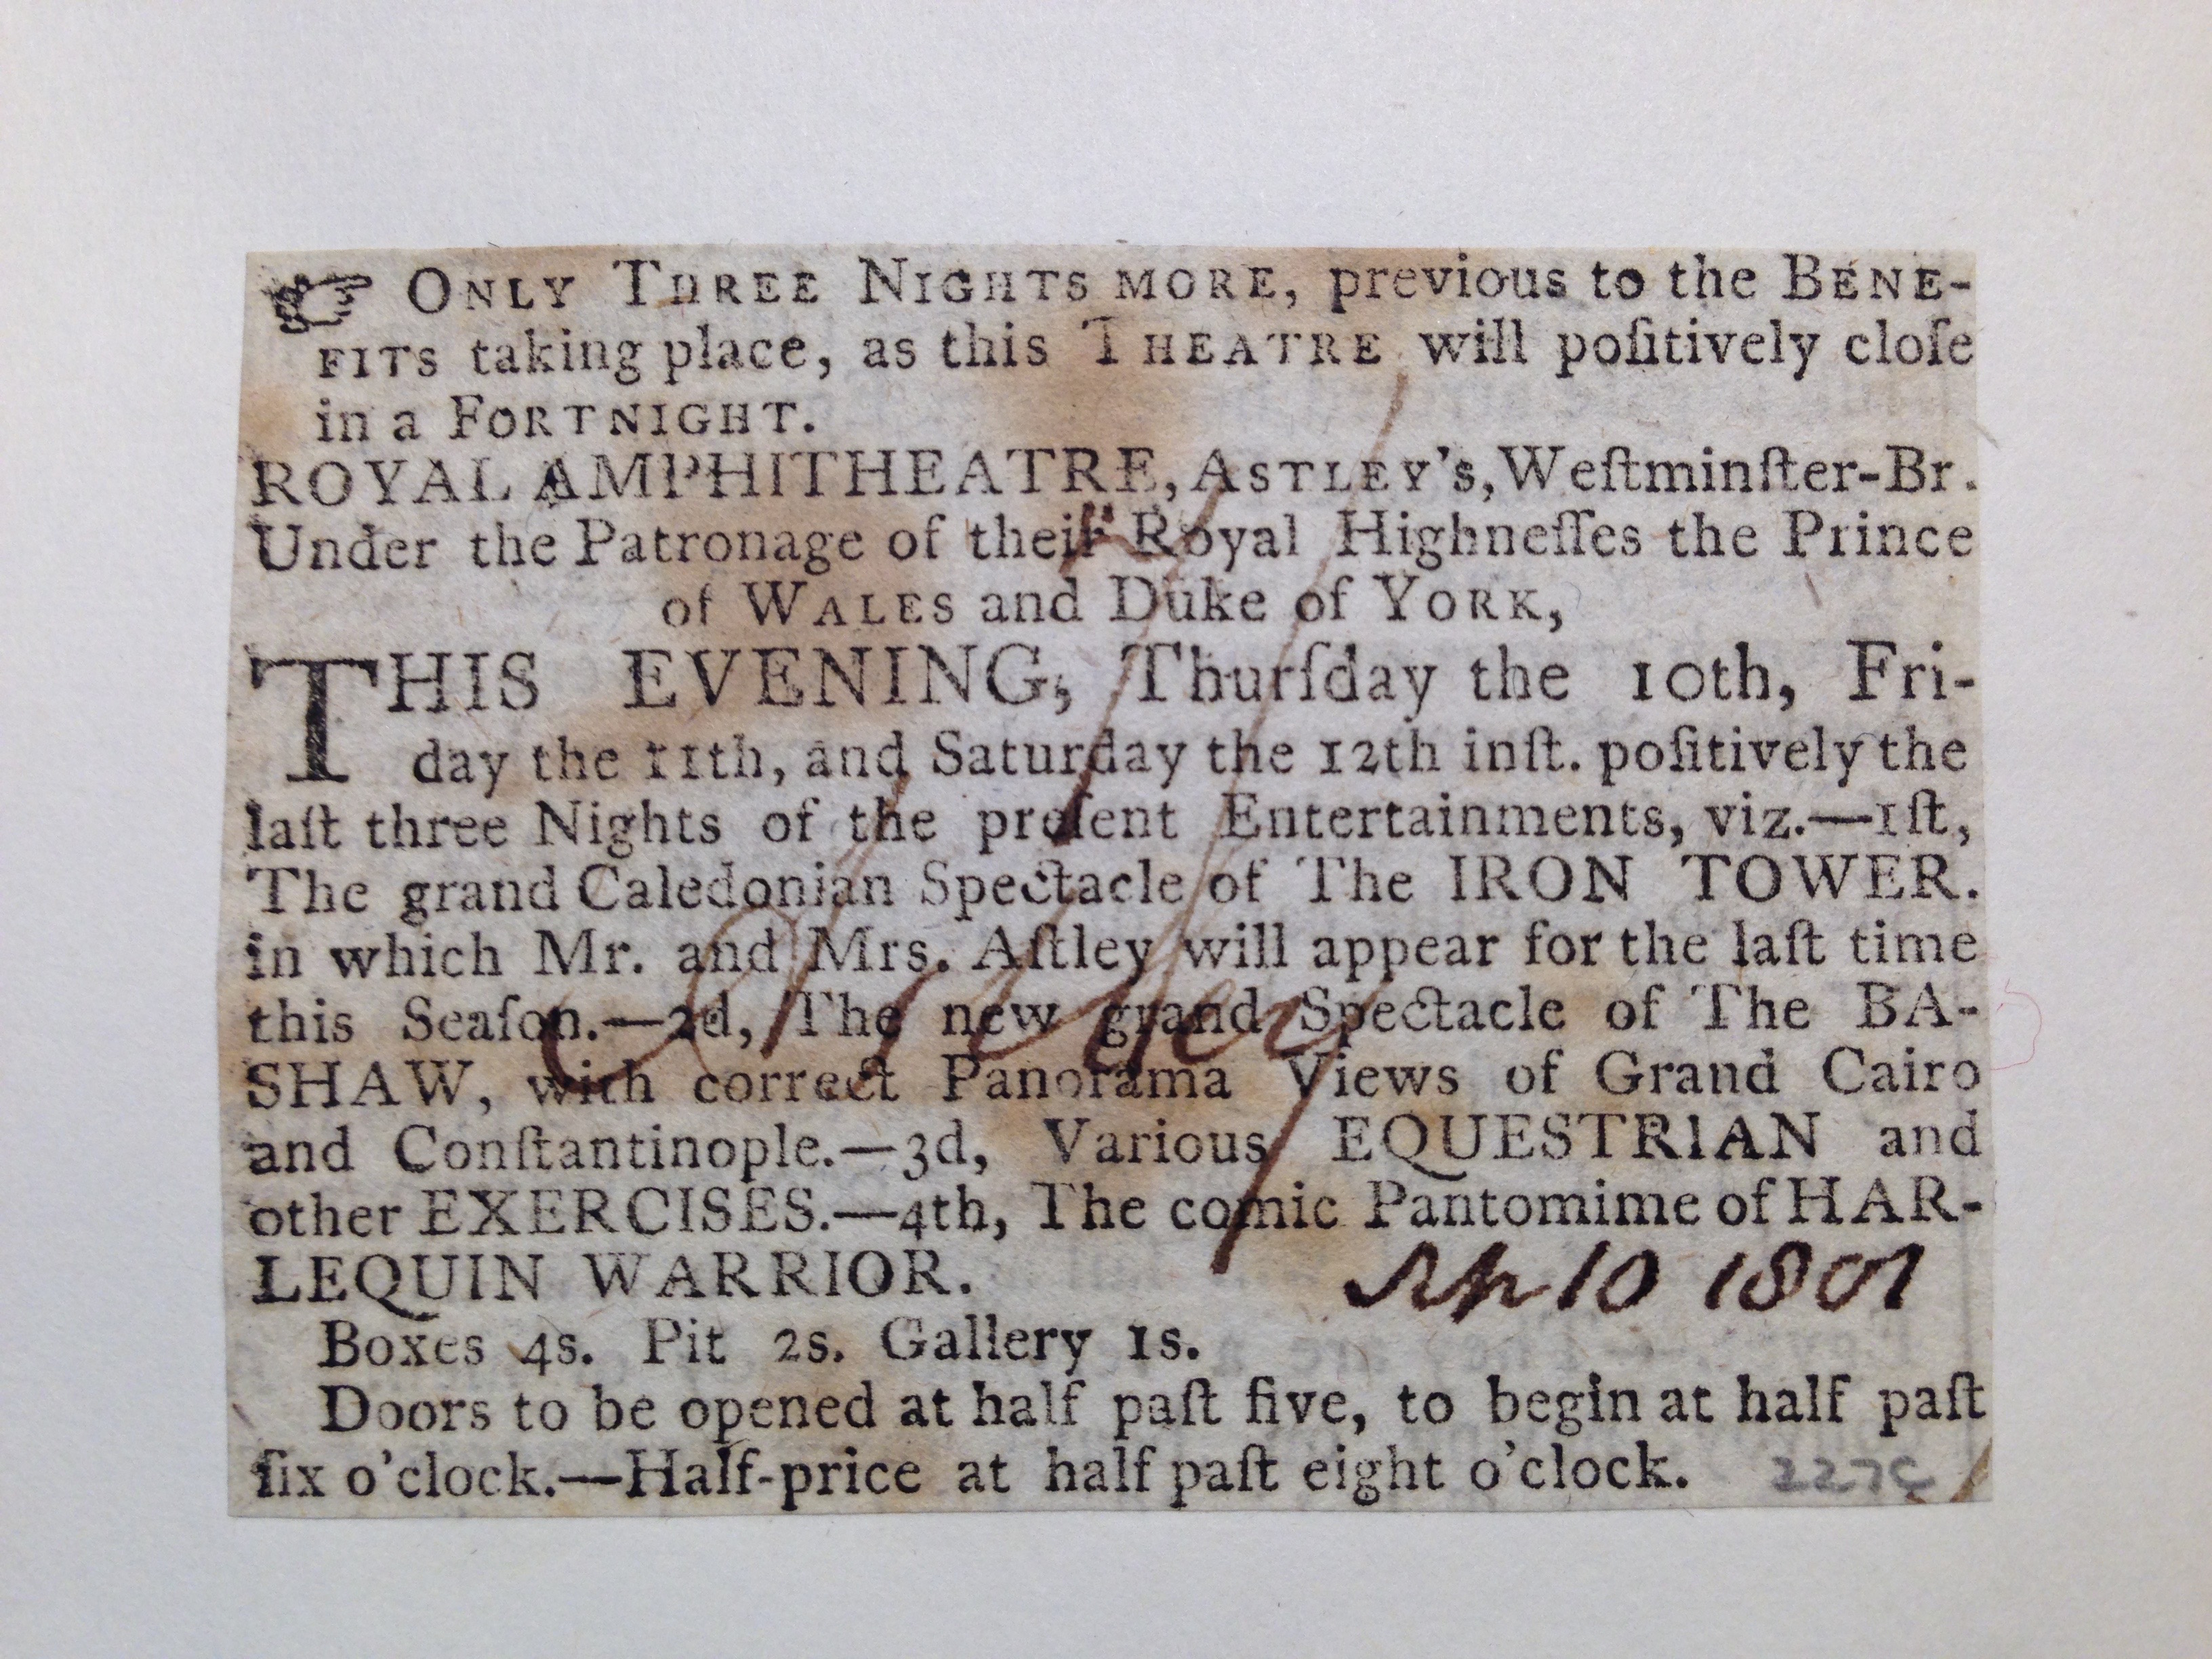 ☞ ONLY THREE NIGHTS MORE, previous to the BENE-
FITS taking place, as this THEATRE will poſitively cloſe
in a FORTNIGHT.
ROYAL AMPHITHEATRE, ASTLEY's, Weſtminſter-Br.
Under the Patronage of their Royal Highneſſes the Prince
of WALES and Duke of YORK,
THIS EVENING, Thurſday the 10th, Fri-
day the 11th, and Saturday the 12th inſt. poſitively the
laſt three Nights of the preſent Entertainments, viz.—1ſt,
The grand Caledonian Spectacle of The IRON TOWER.
in which Mr. and Mrs. Aſtley will appear for the laſt time
this Seaſon.—2d, The new grand Spectacle of The BA-
SHAW, with correct Panorama Views of Grand Cairo
and Conſtantinople.—3d, Various EQUESTRIAN and
other EXERCISES.—4th, The comic Pantomime of HAR-
LEQUIN WARRIOR.
Sep 10 1801
Boxes 4s. Pit 2s. Gallery 1s.
Doors to be opened at half paſt five, to begin at half paſt
ſix o'clock.—Half-price at half paſt eight o'clock.
227C